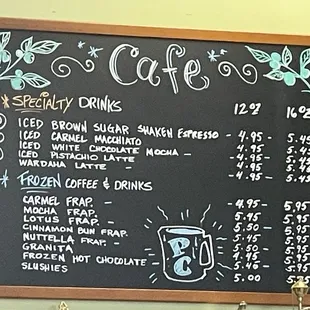 Cafe
SPECIALTY DRINKS 12oz 16oz
ICED BROWN SUGAR SHAKEN ESPRESSO - 4.95 - 5.45
ICED CARMEL MACCHIATO - 4.95 - 5.45
ICED WHITE CHOCOLATE MOCHA - 4.95 - 5.45
ICED PISTACHIO LATTE - 4.95 - 5.45
WARDAHA LATTE - 4.95 - 5.45
FROZEN COFFEE & DRINKS
CARMEL FRAP. - 4.95 - 5.95
MOCHA FRAP. 5.95
LOTUS FRAP. - 5.95
CINNAMON BUN FRAP. 5.95
NUTTELLA FRAP. - 5.95
GRANITA
FROZEN HOT CHOCOLATE
SLUSHIES 5.00
PC